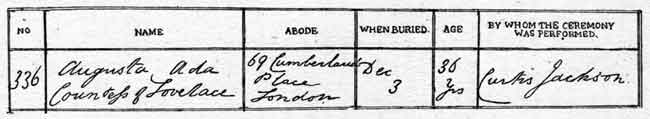 NO NAME ABODE WHEN BURIED. AGE BY WHOM THE CEREMONY WAS PERFORMED.
336
Augusta Ada
Countess of Lovelace
69 Cumberland
Place
London
Dec
3
36
yrs
Curtis Jackson.